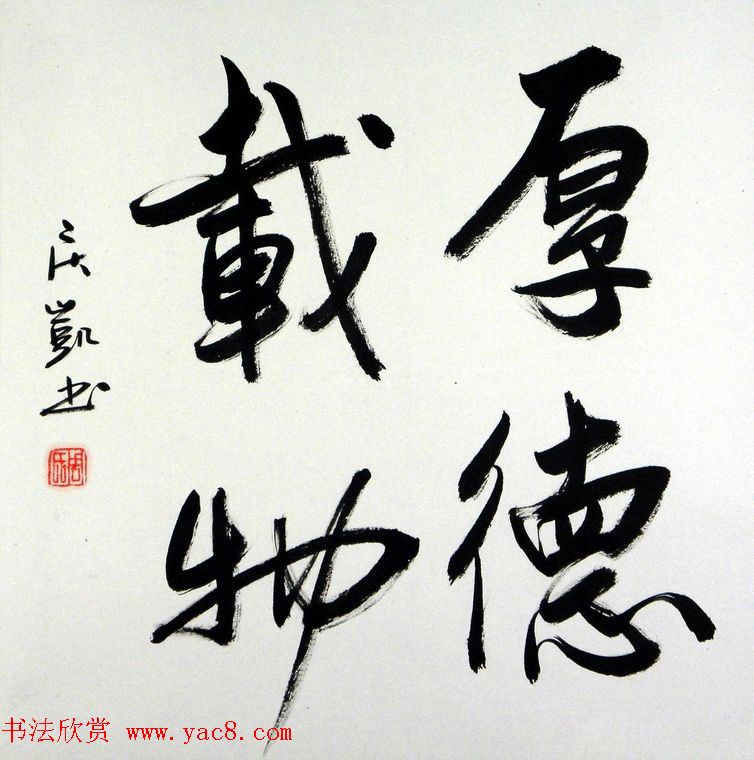 厚德
載物
庆凱书
书法欣赏 www.yac8.com